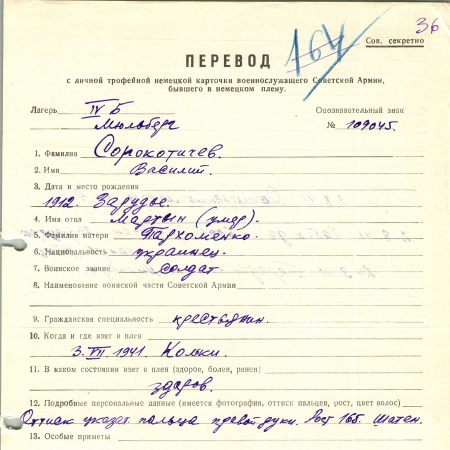 36
164
Сов. секретно
ПЕРЕВОД
с личной трофейной немецкой карточки военнослужащего Советской Армии,
бывшего в немецком плену.
Лагерь IV Б Опознавательный знак
Мюльберг № 109045.
1. Фамилия Сорокотичев.
2. Имя Василий.
3. Дата и место рождения
1912. Зарудье.
4. Имя отца Мартын (умер).
5. Фамилия матери Пархоменко.
6. Национальность украинец.
7. Воинское звание солдат
8. Наименование воинской части Советской Армии
9. Гражданская специальность крестьянин.
10. Когда и где взят в плен
3. VII. 1941. Кольки.
11. В каком состоянии взят в плен (здоров, болен, ранен)
здоров.
12. Подробные персональные данные (имеется фотография, оттиск пальцев, рост, цвет волос)
Оттиск указат. пальца правой руки. Рост 165. Шатен.
13. Особые приметы